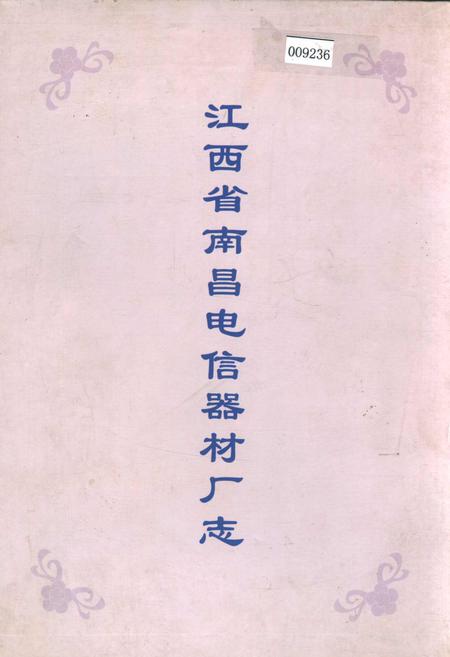 009236
江西省南昌电信器材厂志